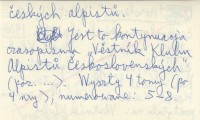 českých alpistů.
Jest to kontynuacja
czasopisma „Věstník Klubu
Alpistů Československých"
(poz. ...). Wyszły 4 tomy (po
4 nry), numerowane: 5-8.